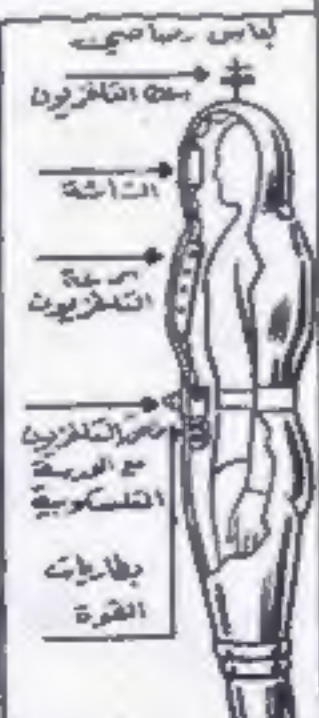 لباس رصاصي..
التلفزيون
الشاشة
التلفزيون
التلفزيون
مع العدسة
التلسكوبية
بطاريات
القوة